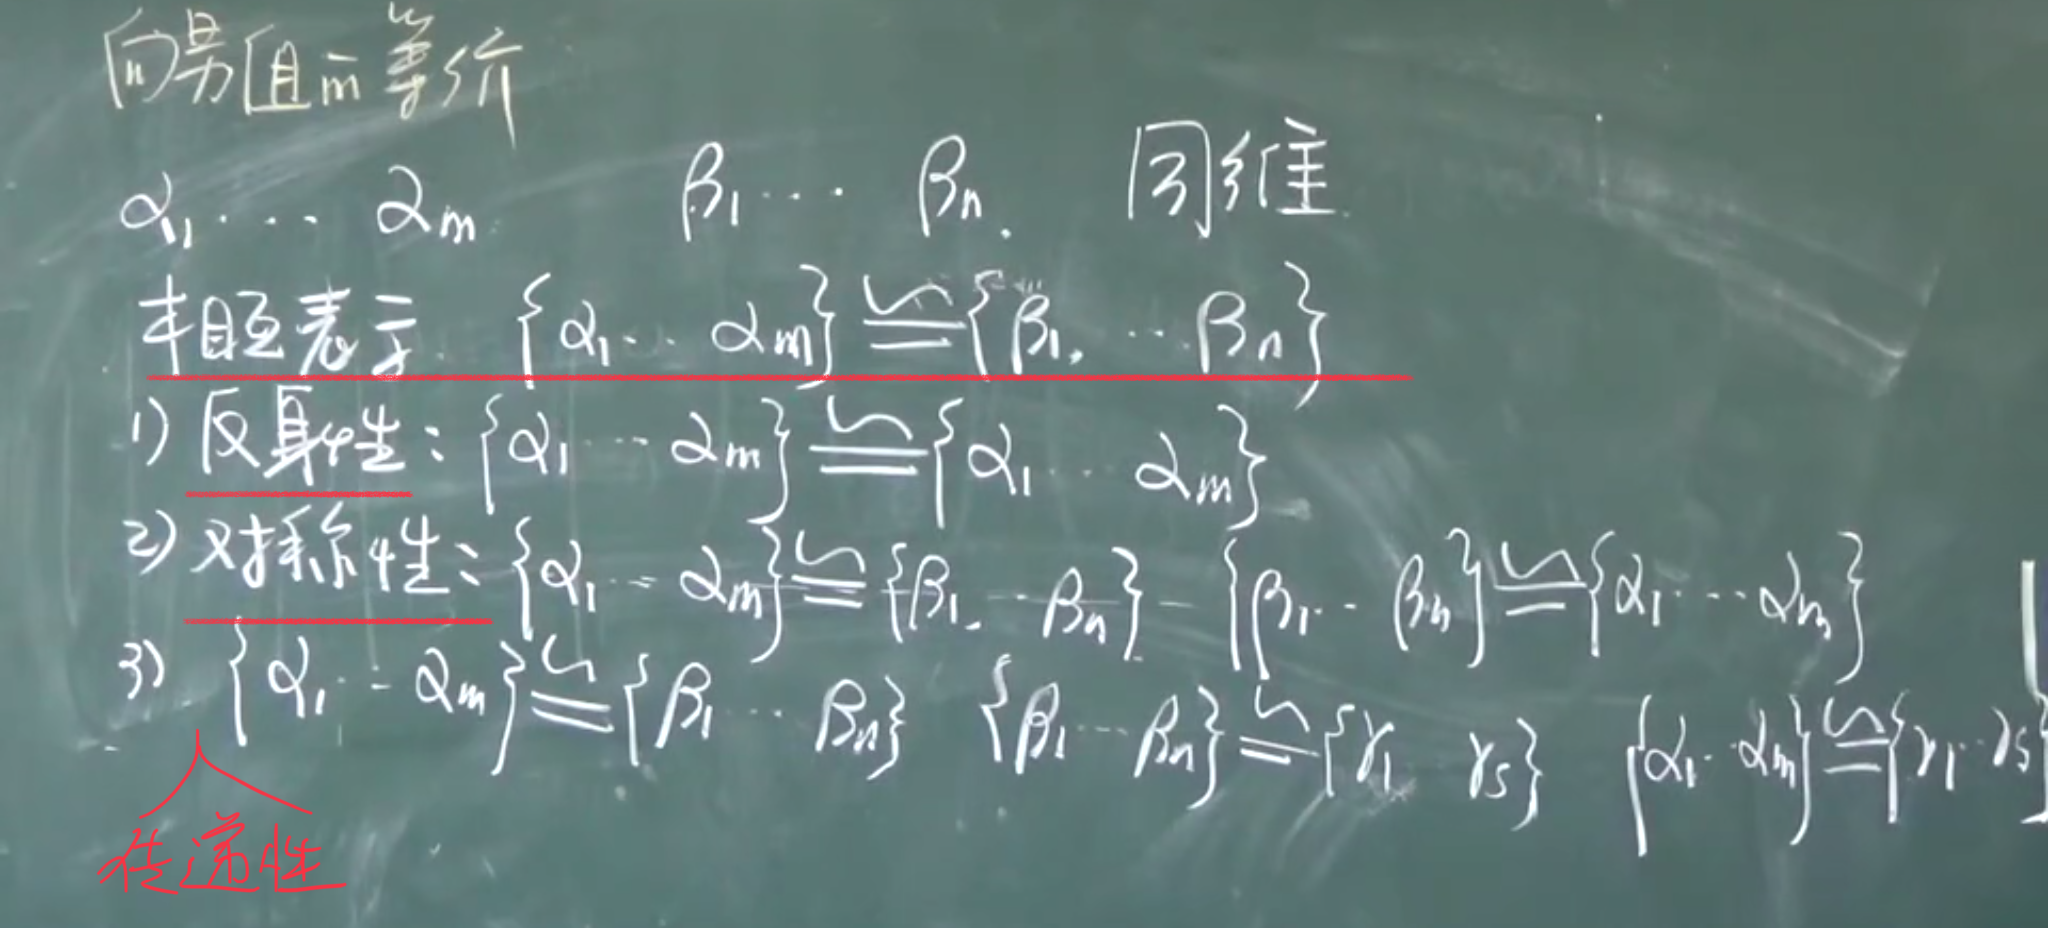 向量组的等价
α₁ ··· α_m β₁ ··· β_n. 同维
相互表示 {α₁ ·· α_m} ≌ {β₁, ·· β_n}
1) 反身性: {α₁ ··· α_m} ≌ {α₁ ·· α_m}
2) 对称性: {α₁ ·· α_m} ≌ {β₁ ·· β_n} {β₁ ·· β_n} ≌ {α₁ ··· α_m}
3) {α₁ ·· α_m} ≌ {β₁ ·· β_n} {β₁ ··· β_n} ≌ {γ₁ γ_s} {α₁ ·· α_m} ≌ {γ₁ ·· γ_s}
传递性